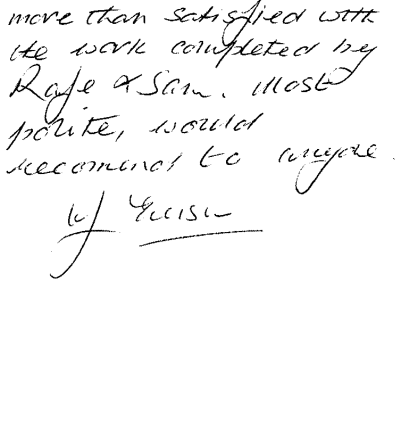 more than satisfied with
the work completed by
Rafe & Sam. Most
polite, would
recommend to anyone.